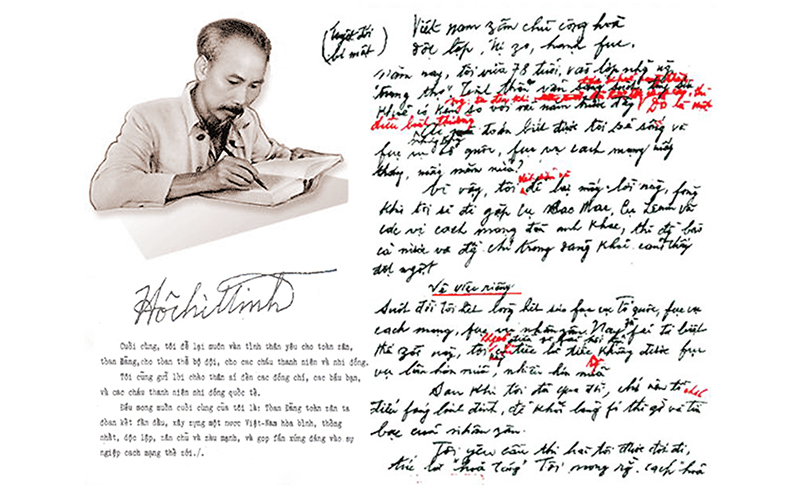 (tuyệt đối
bí mật)
Hồ Chí Minh
Cuối cùng, tôi để lại muôn vàn tình thân yêu cho toàn zân,
toàn Đảng,cho toàn thể bộ đội, cho các cháu thanh niên và nhi đồng.
Tôi cũng gửi lời chào thân ái đến các đồng chí, các bầu bạn,
và các cháu thanh niên nhi đồng quốc tế.
Điều mong muốn cuối cùng của tôi là: Toàn Đảng toàn zân ta
đoàn kết fấn đấu, xây zựng một nước Việt-Nam hòa bình, thống
nhất, độc lập, zân chủ và zàu mạnh, và góp fần xứng đáng vào sự
ngiệp cách mạng thế zới./.
Việt nam zân chủ cộng hoà
độc lập, tự zo, hạnh fuc.
Năm nay, tôi vừa 78 tuổi, vào lớp những
"trung thọ" Tinh thần vẫn sáng suốt
so với vài năm trước đây Đó là một
điều bình thường
toán biết được tôi sẽ sống và
fục vụ tổ quốc, fục vụ cách mạng mấy
tháng, mấy năm nữa?
Vì vậy, tôi để lại mấy lời này, fòng
khi tôi sẽ đi gặp cụ Các Mác, cụ Lênin và
các vị cách mạng đàn anh khác, thì đồng bào
cả nước và đồng chí trong đảng khỏi cảm thấy
đột ngột
Về việc riêng
Suốt đời tôi hết lòng hết sức fục vụ Tổ quốc, fục vụ
cách mạng, fục vụ nhân zân. Nay fải từ biệt
thế zới này, tôi tiếc là tiếc không được fục
vụ lâu hơn nữa, nhiều hơn nữa
Sau khi tôi đã qua đời, chớ nên tổ chức
điếu fúng linh đình, để khỏi lãng fí thì zờ và tiền
bạc của nhân zân.
Tôi yêu cầu thi hài tôi được đốt đi,
tức là "hoả táng" Tôi mong rằng cách hoả